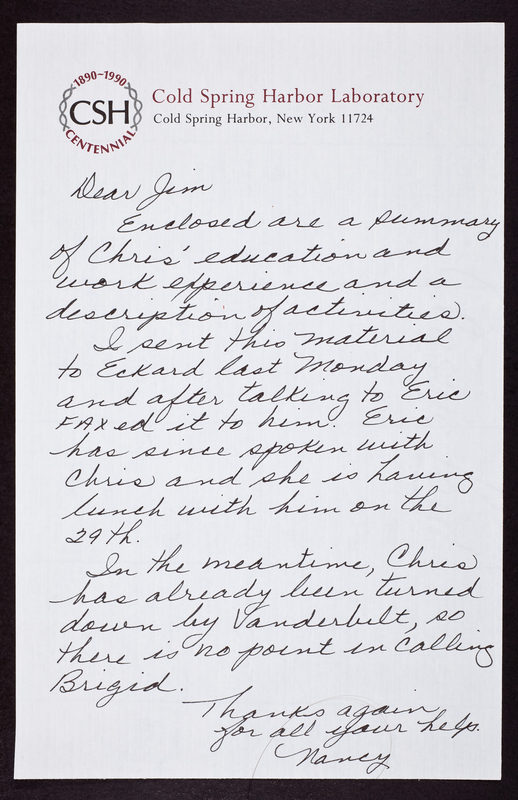 1890-1990
CSH
CENTENNIAL
Cold Spring Harbor Laboratory
Cold Spring Harbor, New York 11724
Dear Jim
Enclosed are a summary
of Chris' education and
work experience and a
description of activities.
I sent this material
to Eckard last Monday
and after talking to Eric
FAXed it to him. Eric
has since spoken with
Chris and she is having
lunch with him on the
29th.
In the meantime, Chris
has already been turned
down by Vanderbilt, so
there is no point in calling
Brigid.
Thanks again
for all your help.
Nancy